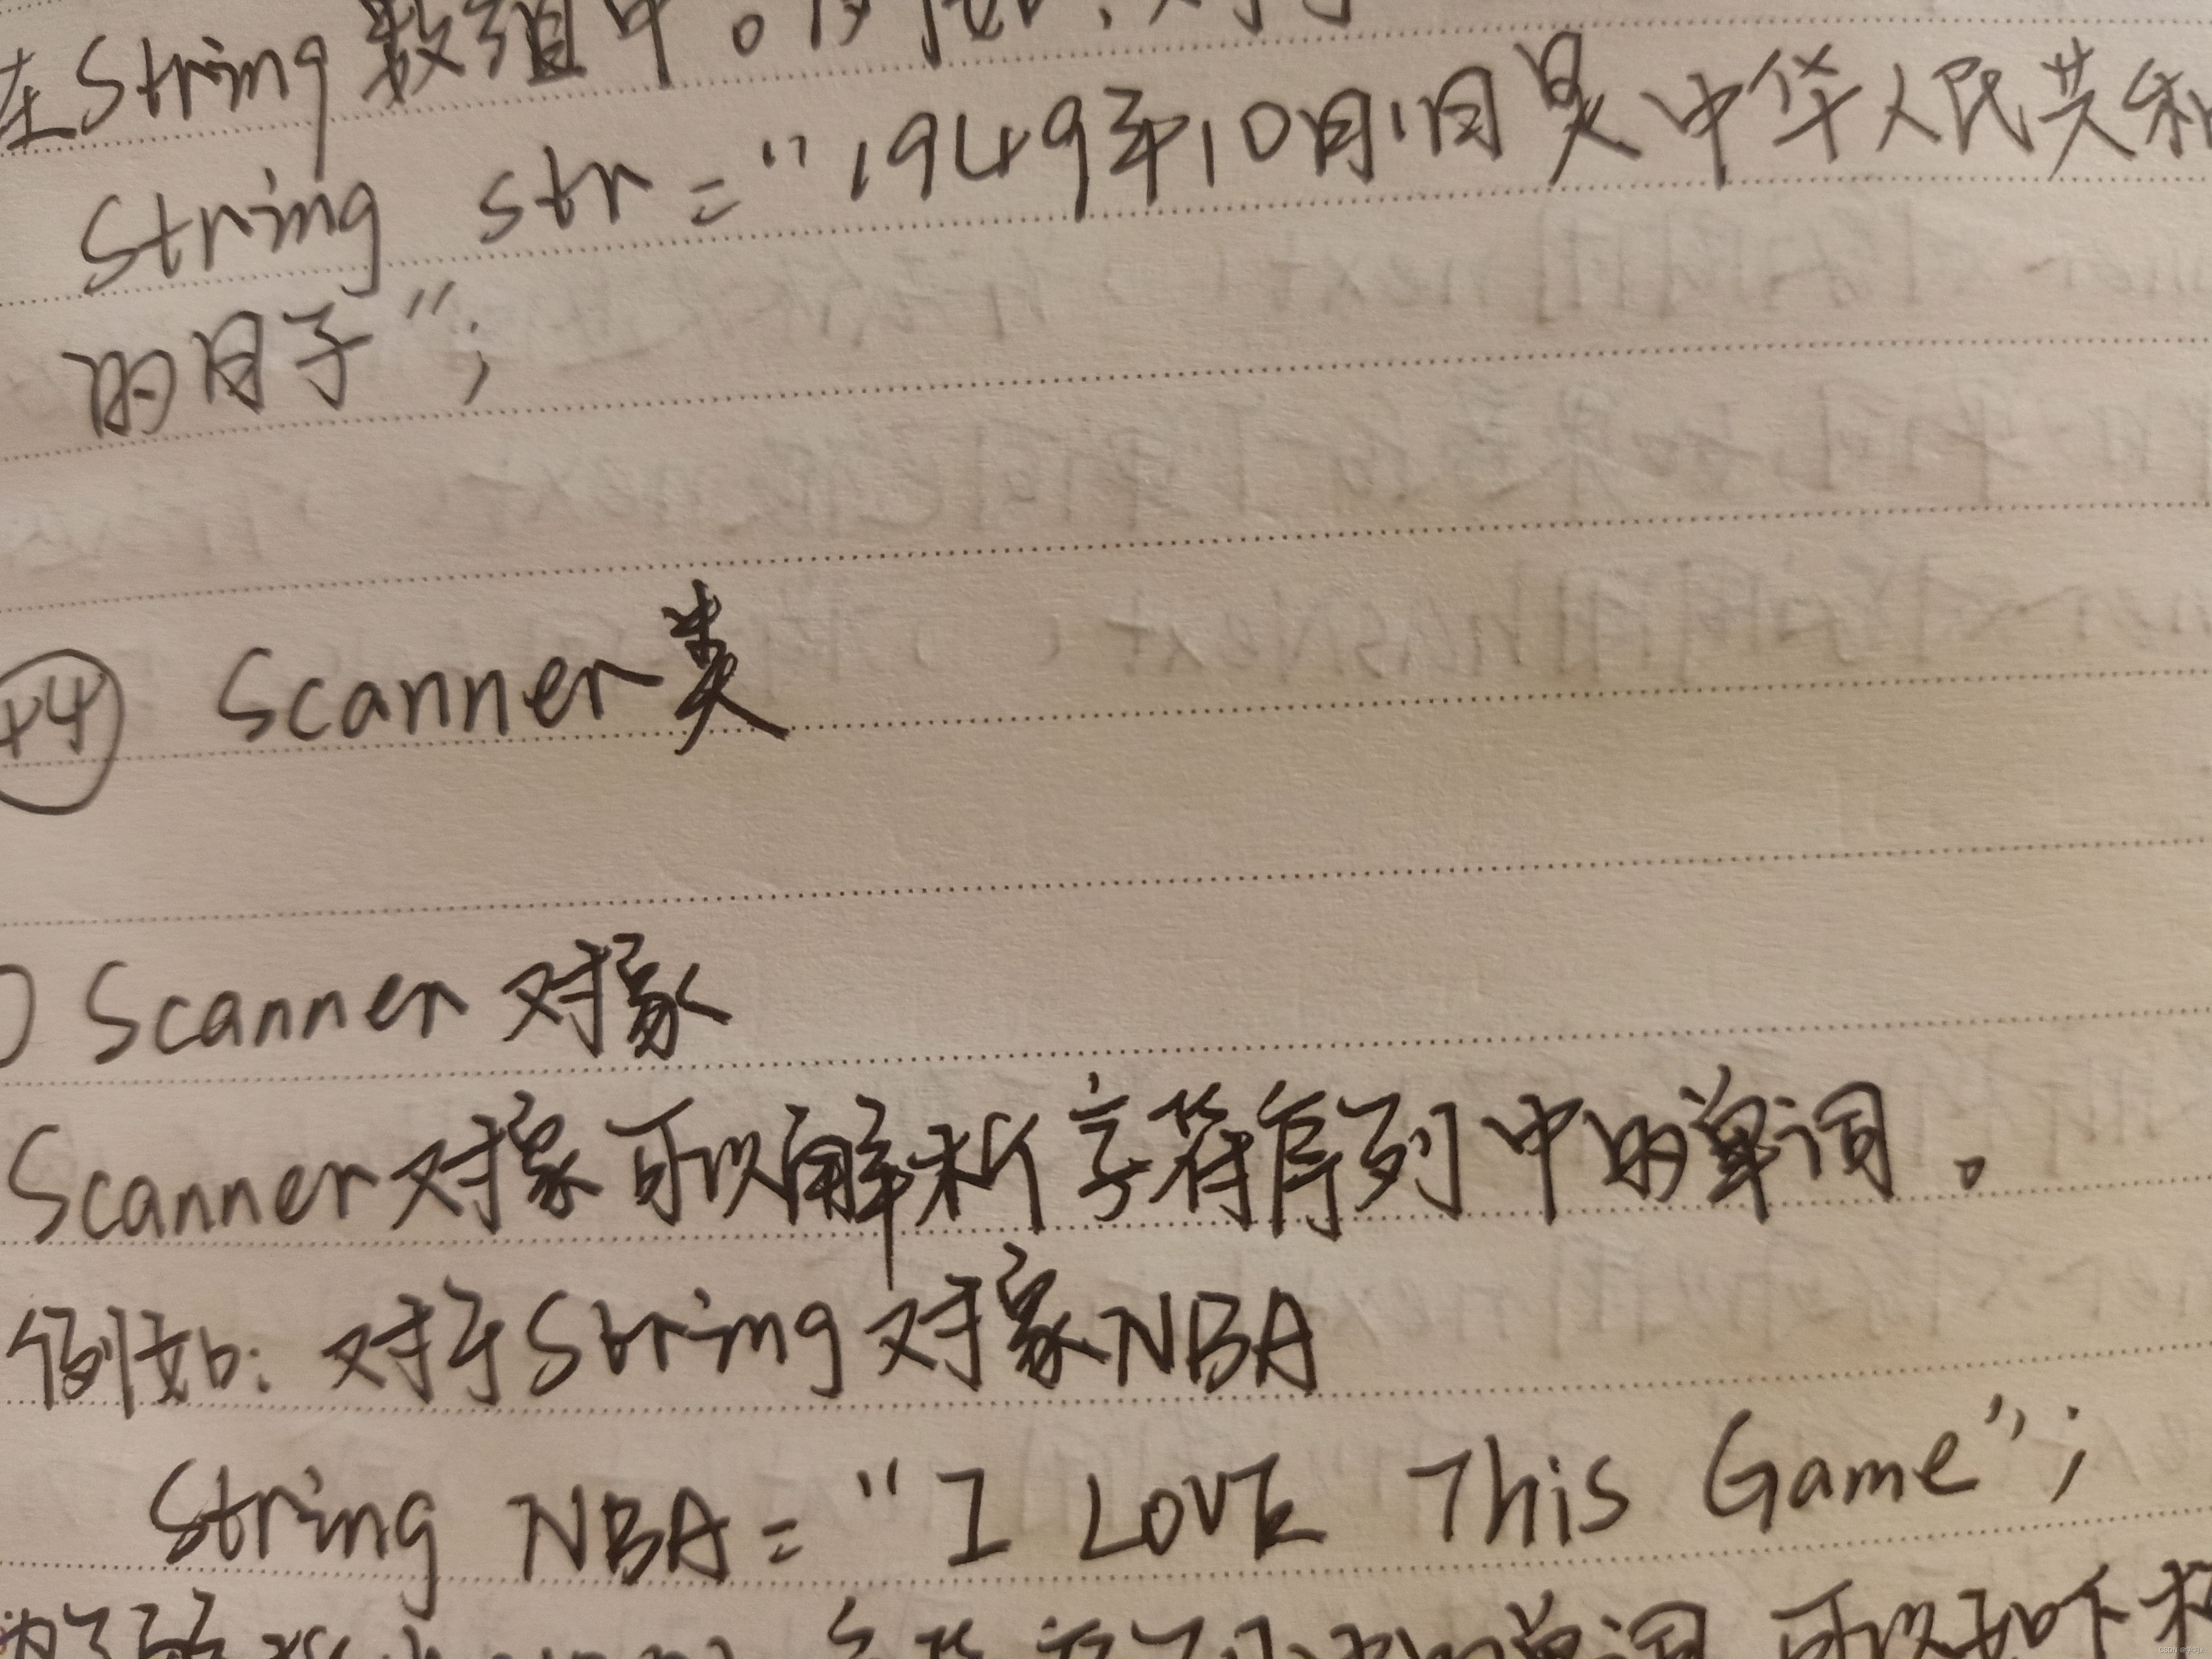 在String数组中。例如：对于
String str = "1949年10月1日是中华人民共和
的日子";
+4 Scanner类
Scanner 对象
Scanner对象可以解析字符序列中的单词。
例如：对于String对象NBA
String NBA = "I LOVE This Game";
单词 可以如下